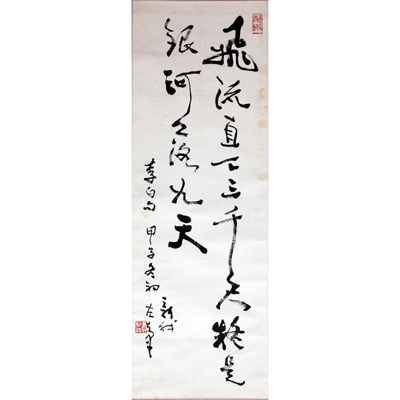 飛流直下三千尺疑是
銀河落九天
李白句 甲子冬初